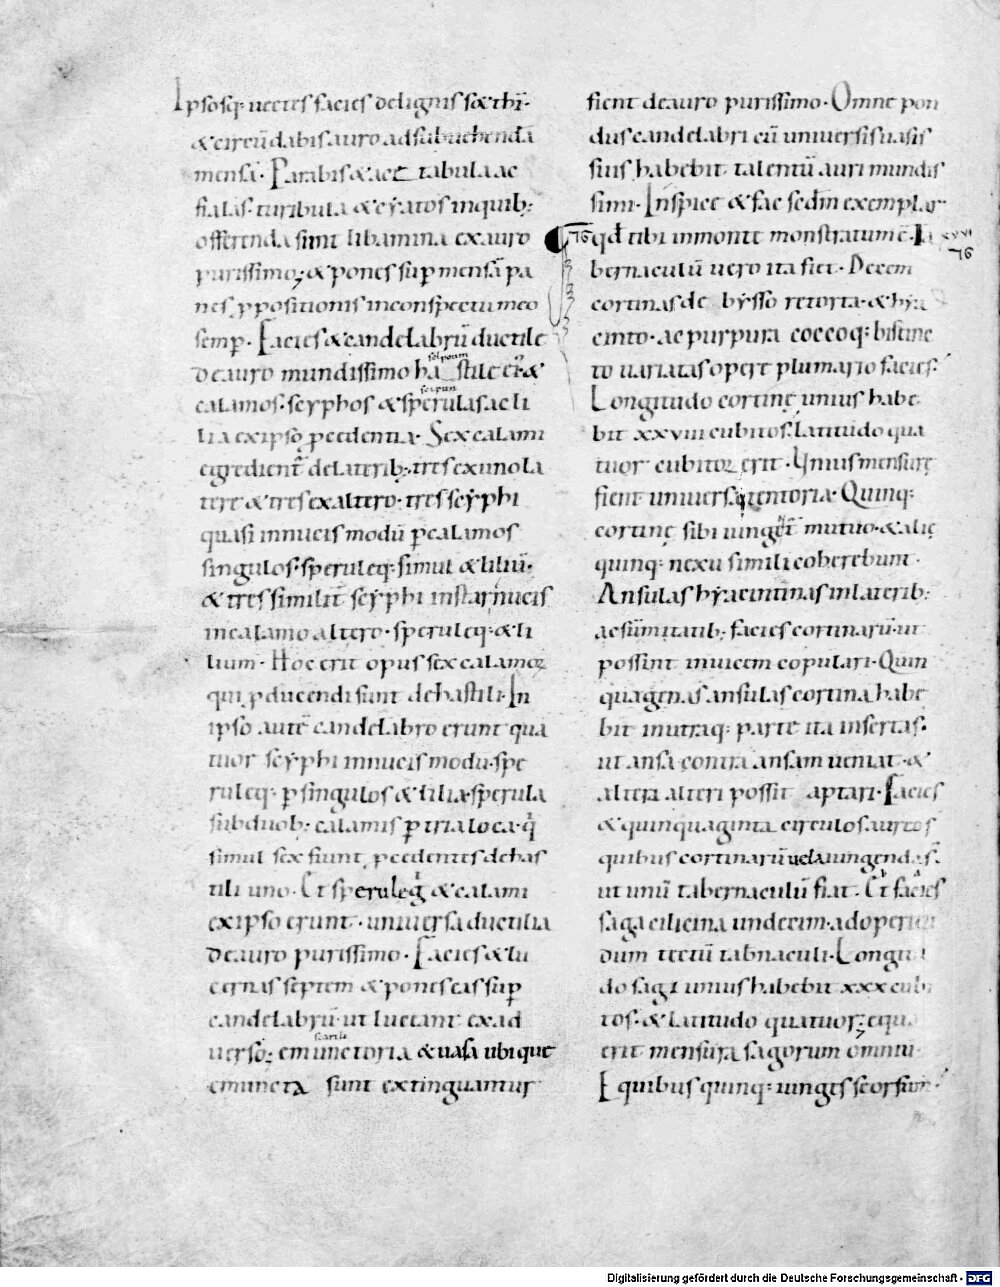 Ipsosq; uectes facies delignis sethī·
& circūdabis auro adsubuehendā
mensā· Parabis & acetabula ac
fialas· turibula & cyatos inquib;
offerenda sunt libamina exauro
purissimo; & pones sup mensā pa
nes ppositionis inconspectu meo
semp· Facies & candelabrū ductile
deauro mundissimo hastile ei; &
calamos· scyphos & sperulas ac li
lia exipso pcedentia· Sex calami
egredient̄ delaterib; tres exuno la
tere & tres exaltero· tres scyphi
quasi innucis modū p calamos
singulos· speruleq; simul & liliū·
& tres similit̄ scyphi instar nucis
incalamo altero· speruleq; & li
lium· Hoc erit opus sex calamoꝝ
qui pducendi sunt dehastili· In
ipso autē candelabro erunt qua
tuor scyphi innucis modū· spe
ruleq; p singulos & lilia· sperula
subduob; calamis p tria loca· q̄
simul sex fiunt pcedentes dehas
tili uno· Et speruleq̄ & calami
exipso erunt· uniuersa ductilia
deauro purissimo· Facies & lu
cernas septem & pones eas sup
candelabrū· ut luceant exad
uerso; emunctoria & uasa ubi que
emuncta sunt extinguantur
fient deauro purissimo· Omne pon
dus candelabri cū uniuersis uasis
suis habebit talentū auri mundis
simi· Inspice & fac sedm exemplar
qđ tibi inmonte monstratum ē· Ta
XXVI
76
76
bernaculū uero ita fiet· Decem
cortinas de bysso retorta· & hya
cinto· ac purpura coccoq; bistinc
to uariatas opere plumario facies·
Longitudo cortinę unius habe
bit xxviii cubitos· latitudo qua
tuor cubitoꝝ erit· Unius mensurę
fient uniuersa tentoria· Quinq;
cortinę sibi iungent̄ mutuo· & alię
quinq; nexu simili coherebunt·
Ansulas hyacintinas inlaterib;
ac sūmitatib; facies cortinarū· ut
possint inuicem copulari· Quin
quagenas ansulas cortina habe
bit inutraq; parte ita insertas·
ut ansa contra ansam ueniat· &
altera alteri possit aptari· Facies
& quinquaginta circulos aureos
quibus cortinarū uela iungenda s̄·
ut unū tabernaculū fiat· Et facies
saga cilicina undecim· adoperien
dum tectū tabnaculi· Longitu
do sagi unius habebit xxx cubi
tos· & latitudo quatuor; equa
erit mensura sagorum omniū·
E quibus quinq; iunges seorsum·
Digitalisierung gefördert durch die Deutsche Forschungsgemeinschaft - DFG